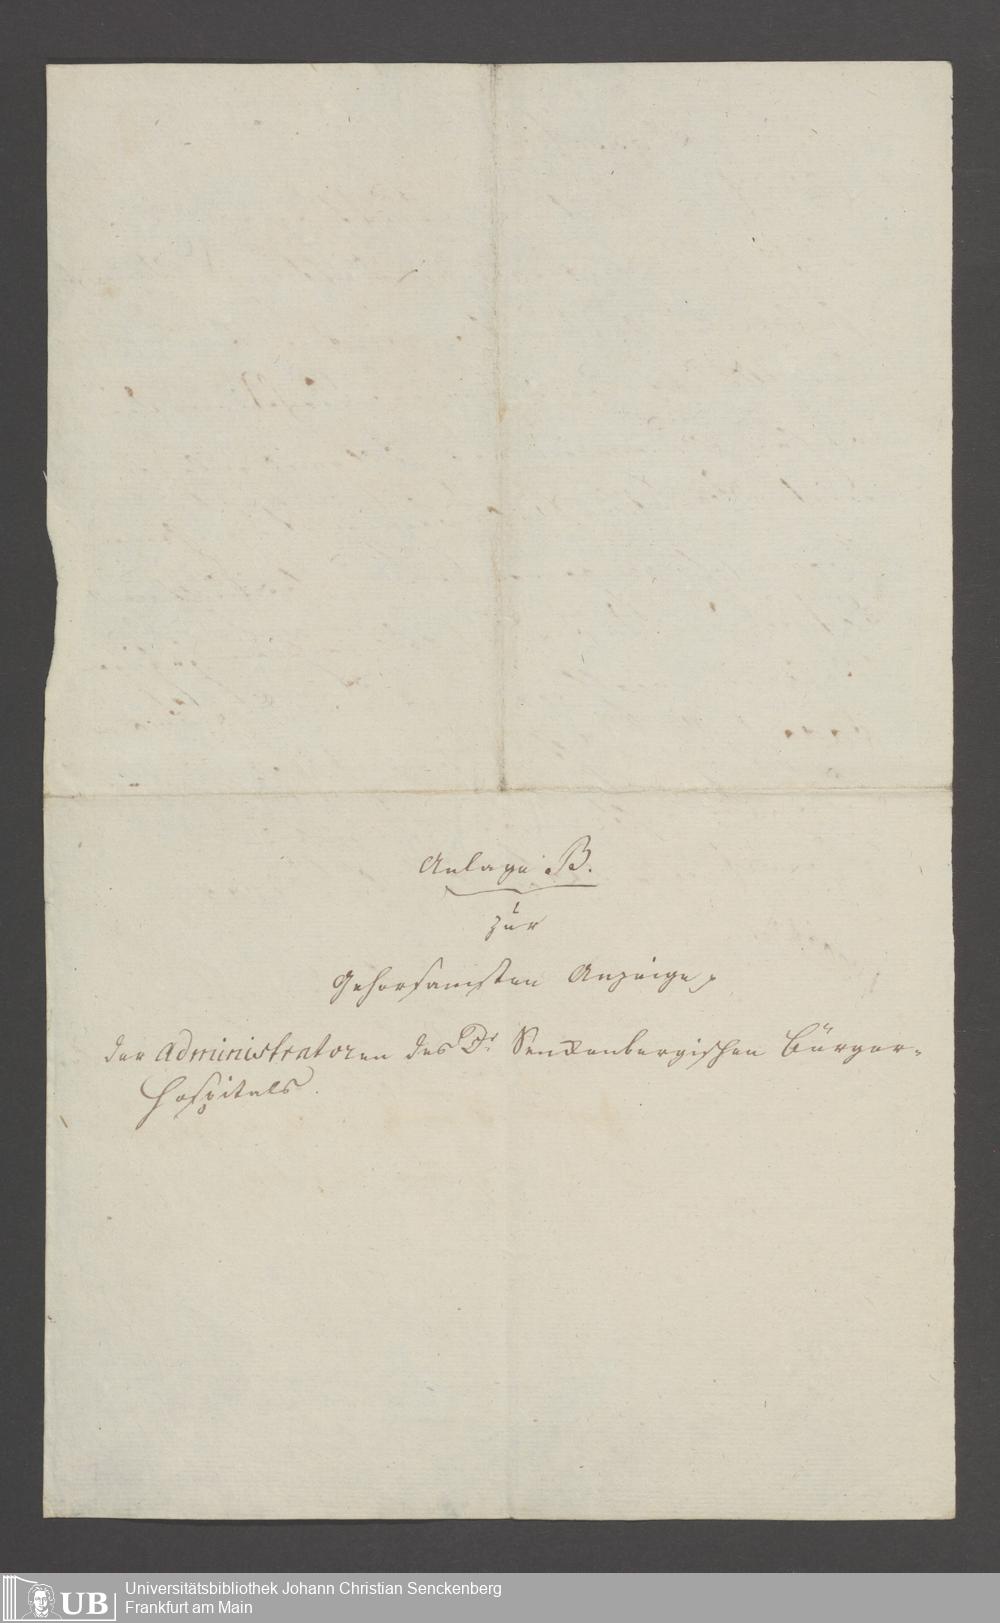 Anlage B.
zur
Gehorsamsten Anzeige,
der Administratoren des Dr Senckenbergischen Bürger-
hospitals.
UB
Universitätsbibliothek Johann Christian Senckenberg
Frankfurt am Main